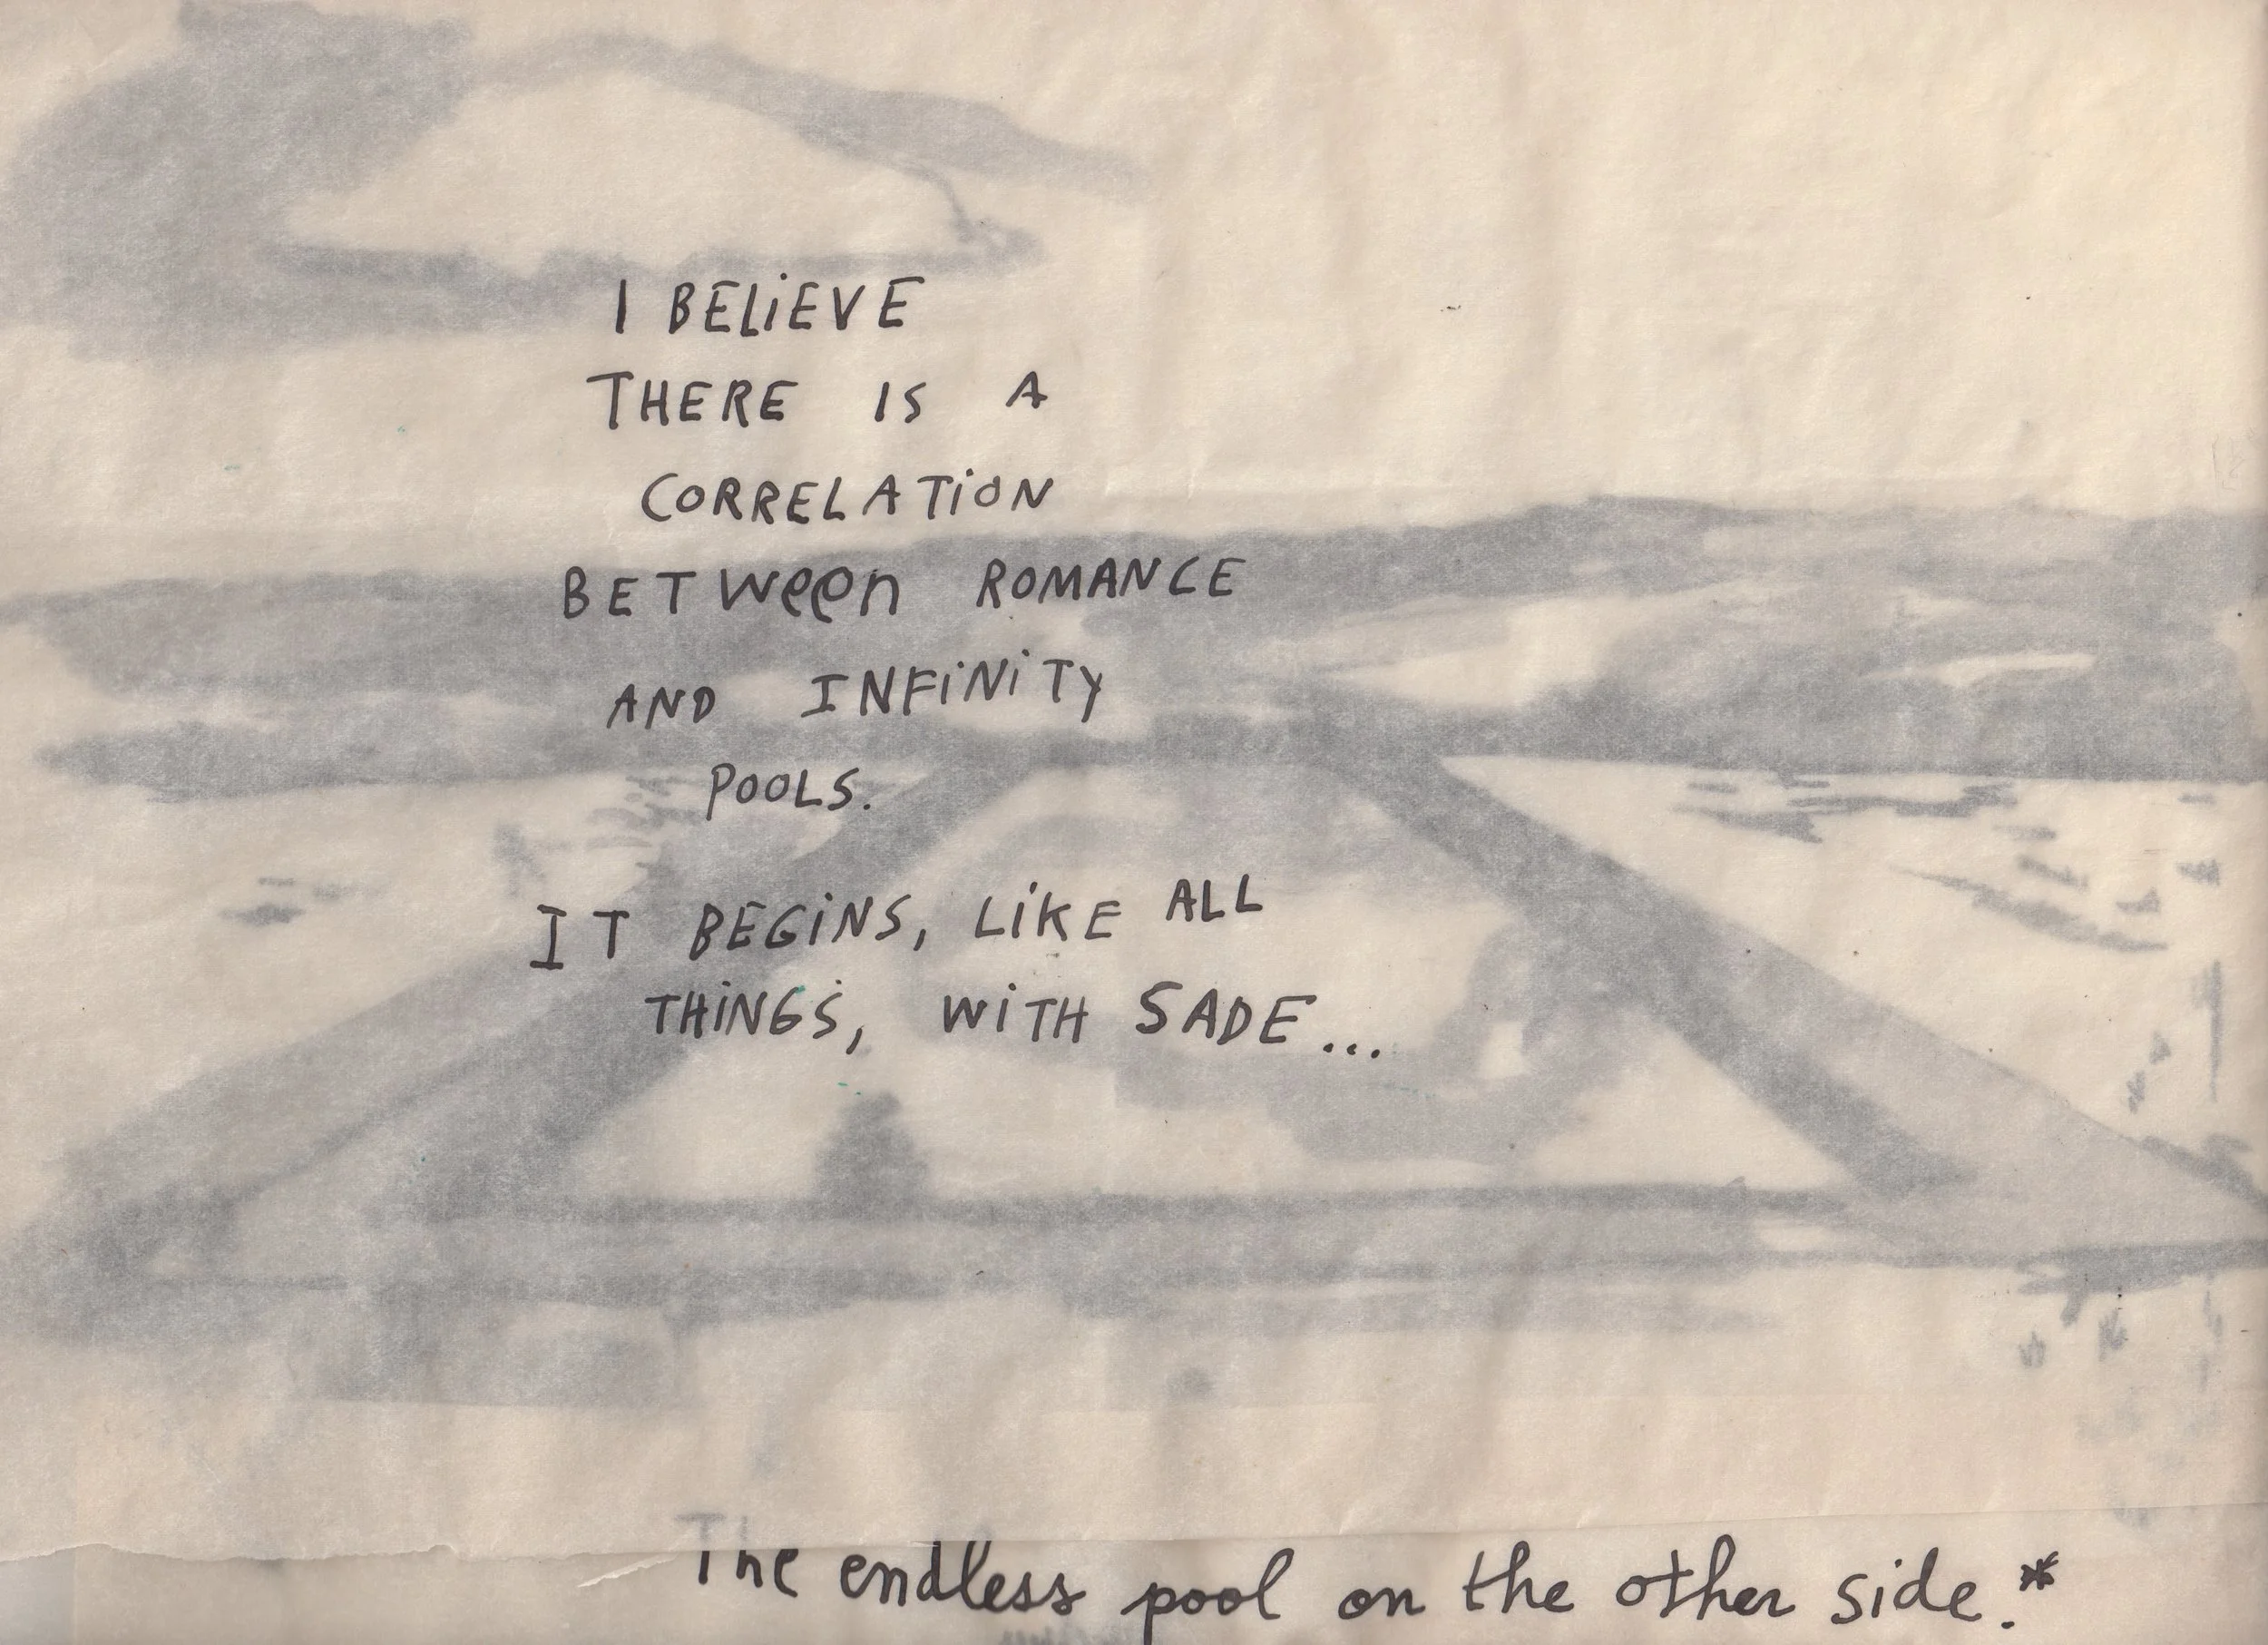 I BELiEVE
THERE IS A
CORRELATiON
BETWeen ROMANCE
AND INFiNiTY
POOLS.
IT BEGiNS, LiKE ALL
THiNGS, WiTH SADE...
The endless pool on the other side.*